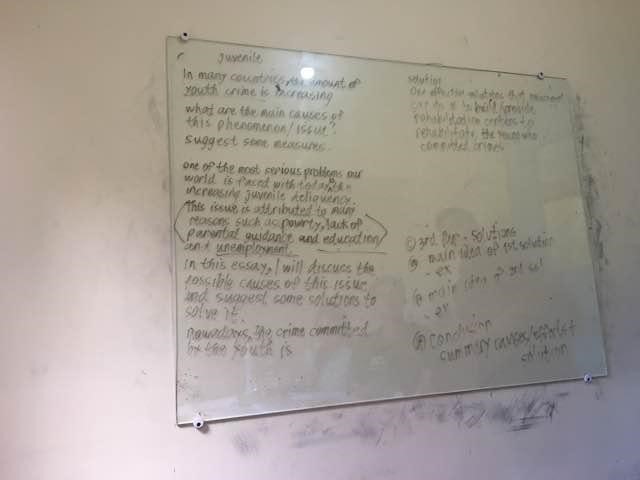 juvenile
In many countries, the amount of
youth crime is increasing
what are the main causes of
this phenomenon/issue?
suggest some measures.
one of the most serious problems our
world is faced with today is
increasing juvenile
This issue is attributed to many
reasons such as poverty, lack of
parental guidance and education
and unemployment.
in this essay, I will discuss the
possible causes of this issue
and suggest some solutions to
solve it.
nowadays, the crime committed
by the youth is
solution
One effective solutions that
can do is to build/provide
rehabilitation centers to
rehabilitate the who
committed crimes
3rd par - solutions
main idea of 1st solution
- ex
main idea of sol
- ex
conclusion
summary causes/effects+
solution